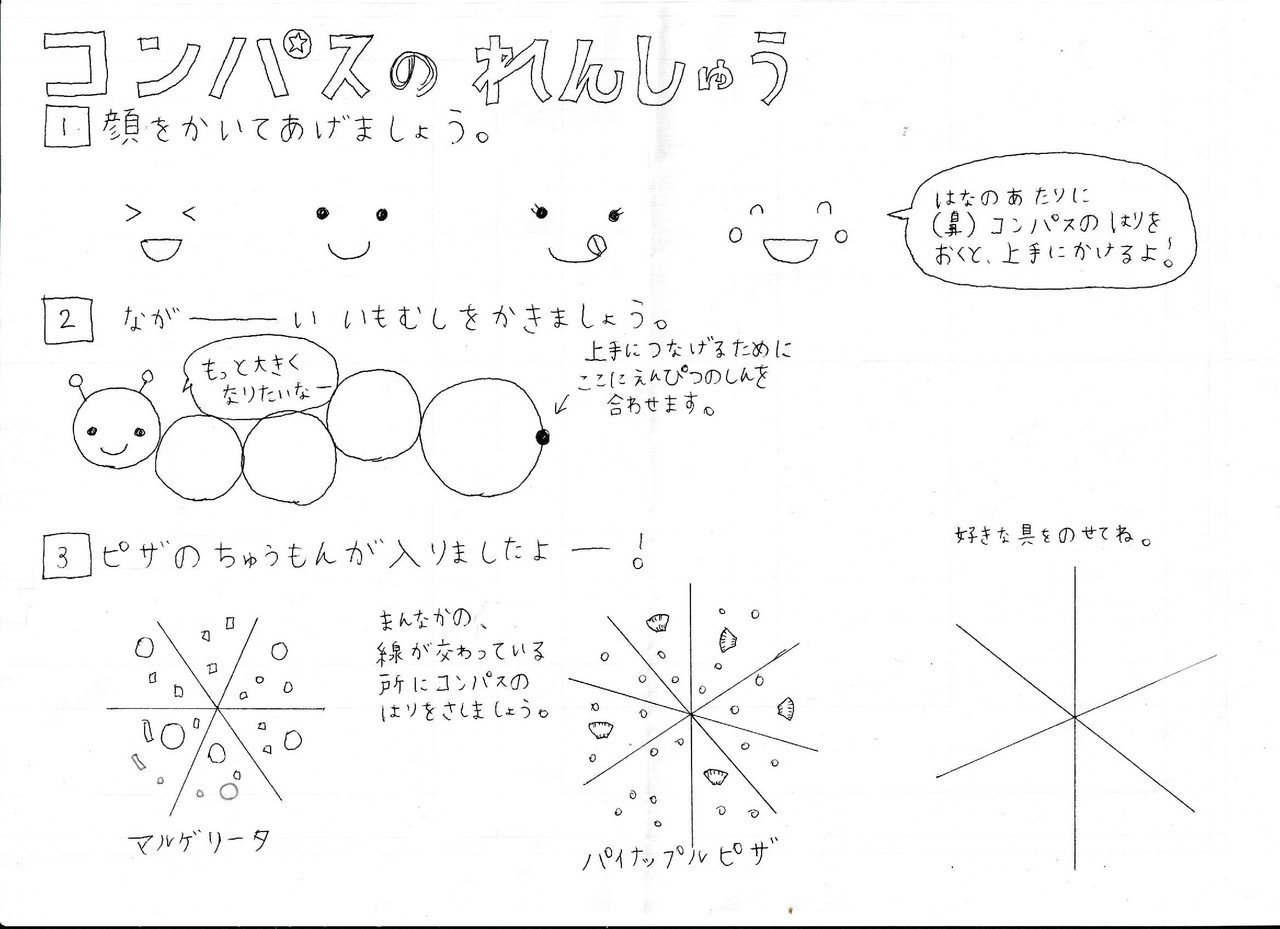 コンパスの れんしゅう
1 顔をかいてあげましょう。
はなのあたりに
(鼻) コンパスのはりを
おくと、上手にかけるよ!
2 なが──い いもむしをかきましょう。
もっと大きく
なりたいなー
上手につなげるために
ここにえんぴつのしんを
合わせます。
3 ピザのちゅうもんが入りましたよー!
まんなかの、
線が交わっている
所にコンパスの
はりをさしましょう。
好きな具をのせてね。
マルゲリータ
パイナップルピザ